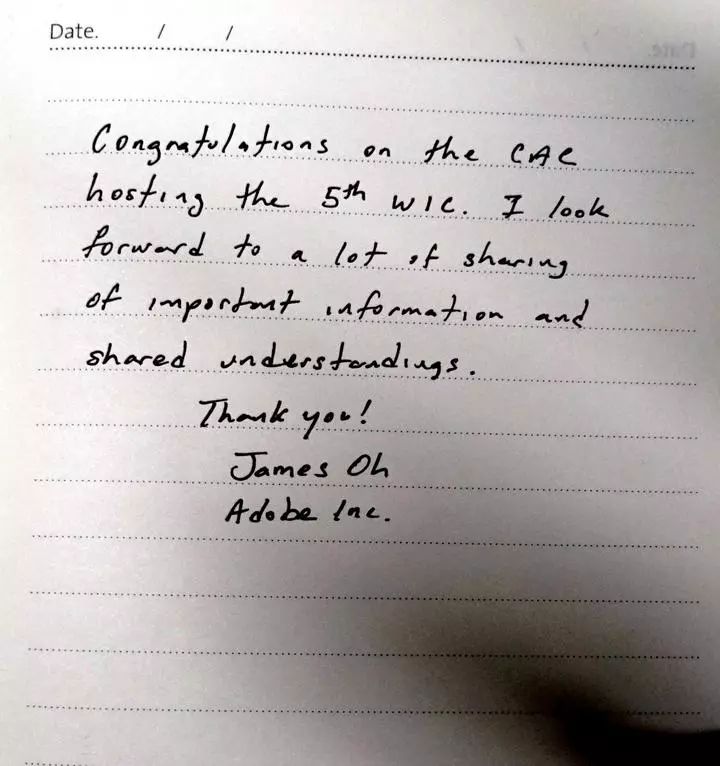 Date. / /
Congratulations on the CAC
hosting the 5th WIC. I look
forward to a lot of sharing
of important information and
shared understandings.
Thank you!
James Oh
Adobe Inc.